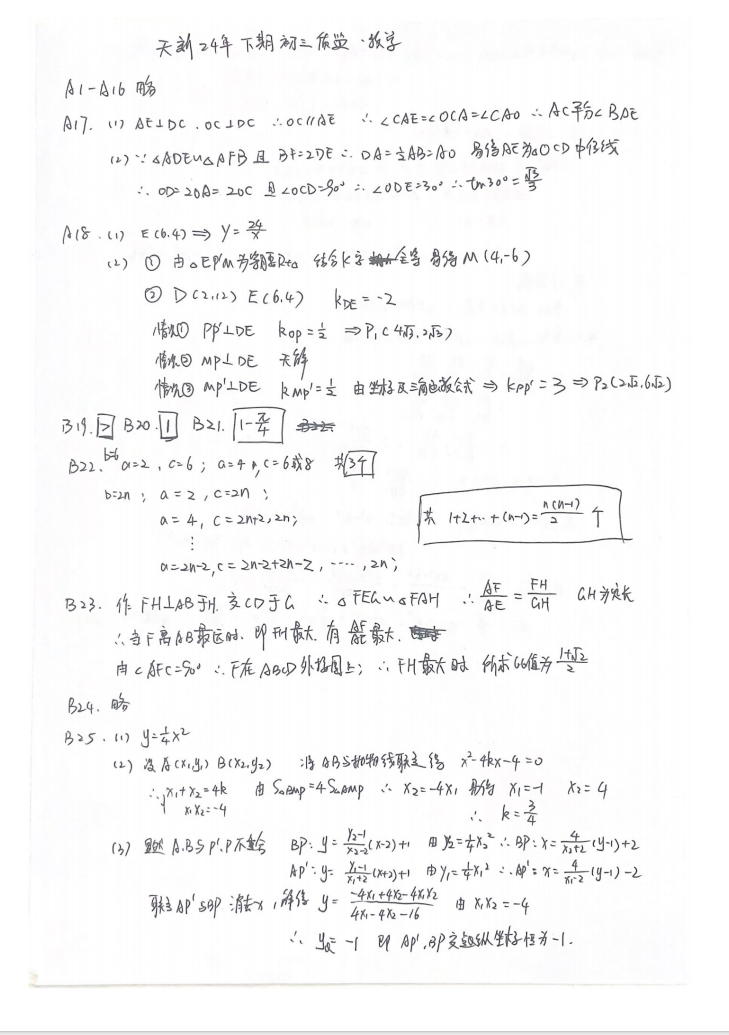 天新24年下期初三质监·数学
A1-A16 略
A17. (1) AE⊥DC . OC⊥DC ∴OC∥AE ∴∠CAE=∠OCA=∠CAO ∴AC平分∠BAE
(2) ∵△ADE∽△AFB 且 BF=2DE ∴ DA=½AB=AO 易得AE为△OCD中位线
∴ OD=2OA=2OC 且∠OCD=90° ∴∠ODE=30° ∴tan30°=√3/3
A18. (1) E(6,4) ⇒ y=24/x
(2) ① 由△EP'M为等腰Rt△ 结合K字全等 易得 M(4,-6)
② D(2,12) E(6,4) k_DE=-2
情况① PP'⊥DE k_OP=½ ⇒P₁(4√3,2√3)
情况② MP⊥DE 无解
情况③ MP'⊥DE k_MP'=½ 由坐标及三角函数公式 ⇒ k_PP'=3 ⇒P₂(2√2,6√2)
B19. > B20. 1 B21. 1-π/4
B22. b=6 a=2, c=6; a=4, c=6或8 共3个
b=2n; a=2, c=2n;
a=4, c=2n+2, 2n;
⋮
a=2n-2, c=2n-2+2n-2, ····, 2n;
共 1+2+···+(n-1)=n(n-1)/2 个
B23. 作 FH⊥AB于H, 交CD于G ∴△FEG∽△FAH ∴ AF/AE=FH/GH GH为定长
∴当F离AB最远时, 即FH最大, 有 AF/AE 最大.
由∠AFC=90° ∴F在ABCD外接圆上; ∴FH最大时 所求比值为 (1+√2)/2
B24. 略
B25. (1) y=¼x²
(2) 设A(x₁,y₁) B(x₂,y₂) 将AB与抛物线联立得 x²-4kx-4=0
∴{x₁+x₂=4k x₁x₂=-4 由 S△BMP=4S△AMP ∴ x₂=-4x₁ 易得 x₁=-1 x₂=4
∴ k=3/4
(3) 显然A.B与P'.P不重合 BP: y=(y₂-1)/(x₂-2)(x-2)+1 由y₂=¼x₂² ∴BP: x=4/(x₂+2)(y-1)+2
AP': y=(y₁-1)/(x₁+2)(x+2)+1 由y₁=¼x₁² ∴AP': x=4/(x₁-2)(y-1)-2
联立AP'与BP 消去x, 解得 y=(-4x₁+4x₂-4x₁x₂)/(4x₁-4x₂-16) 由 x₁x₂=-4
∴ y_Q=-1 即 AP', BP交点纵坐标恒为-1.